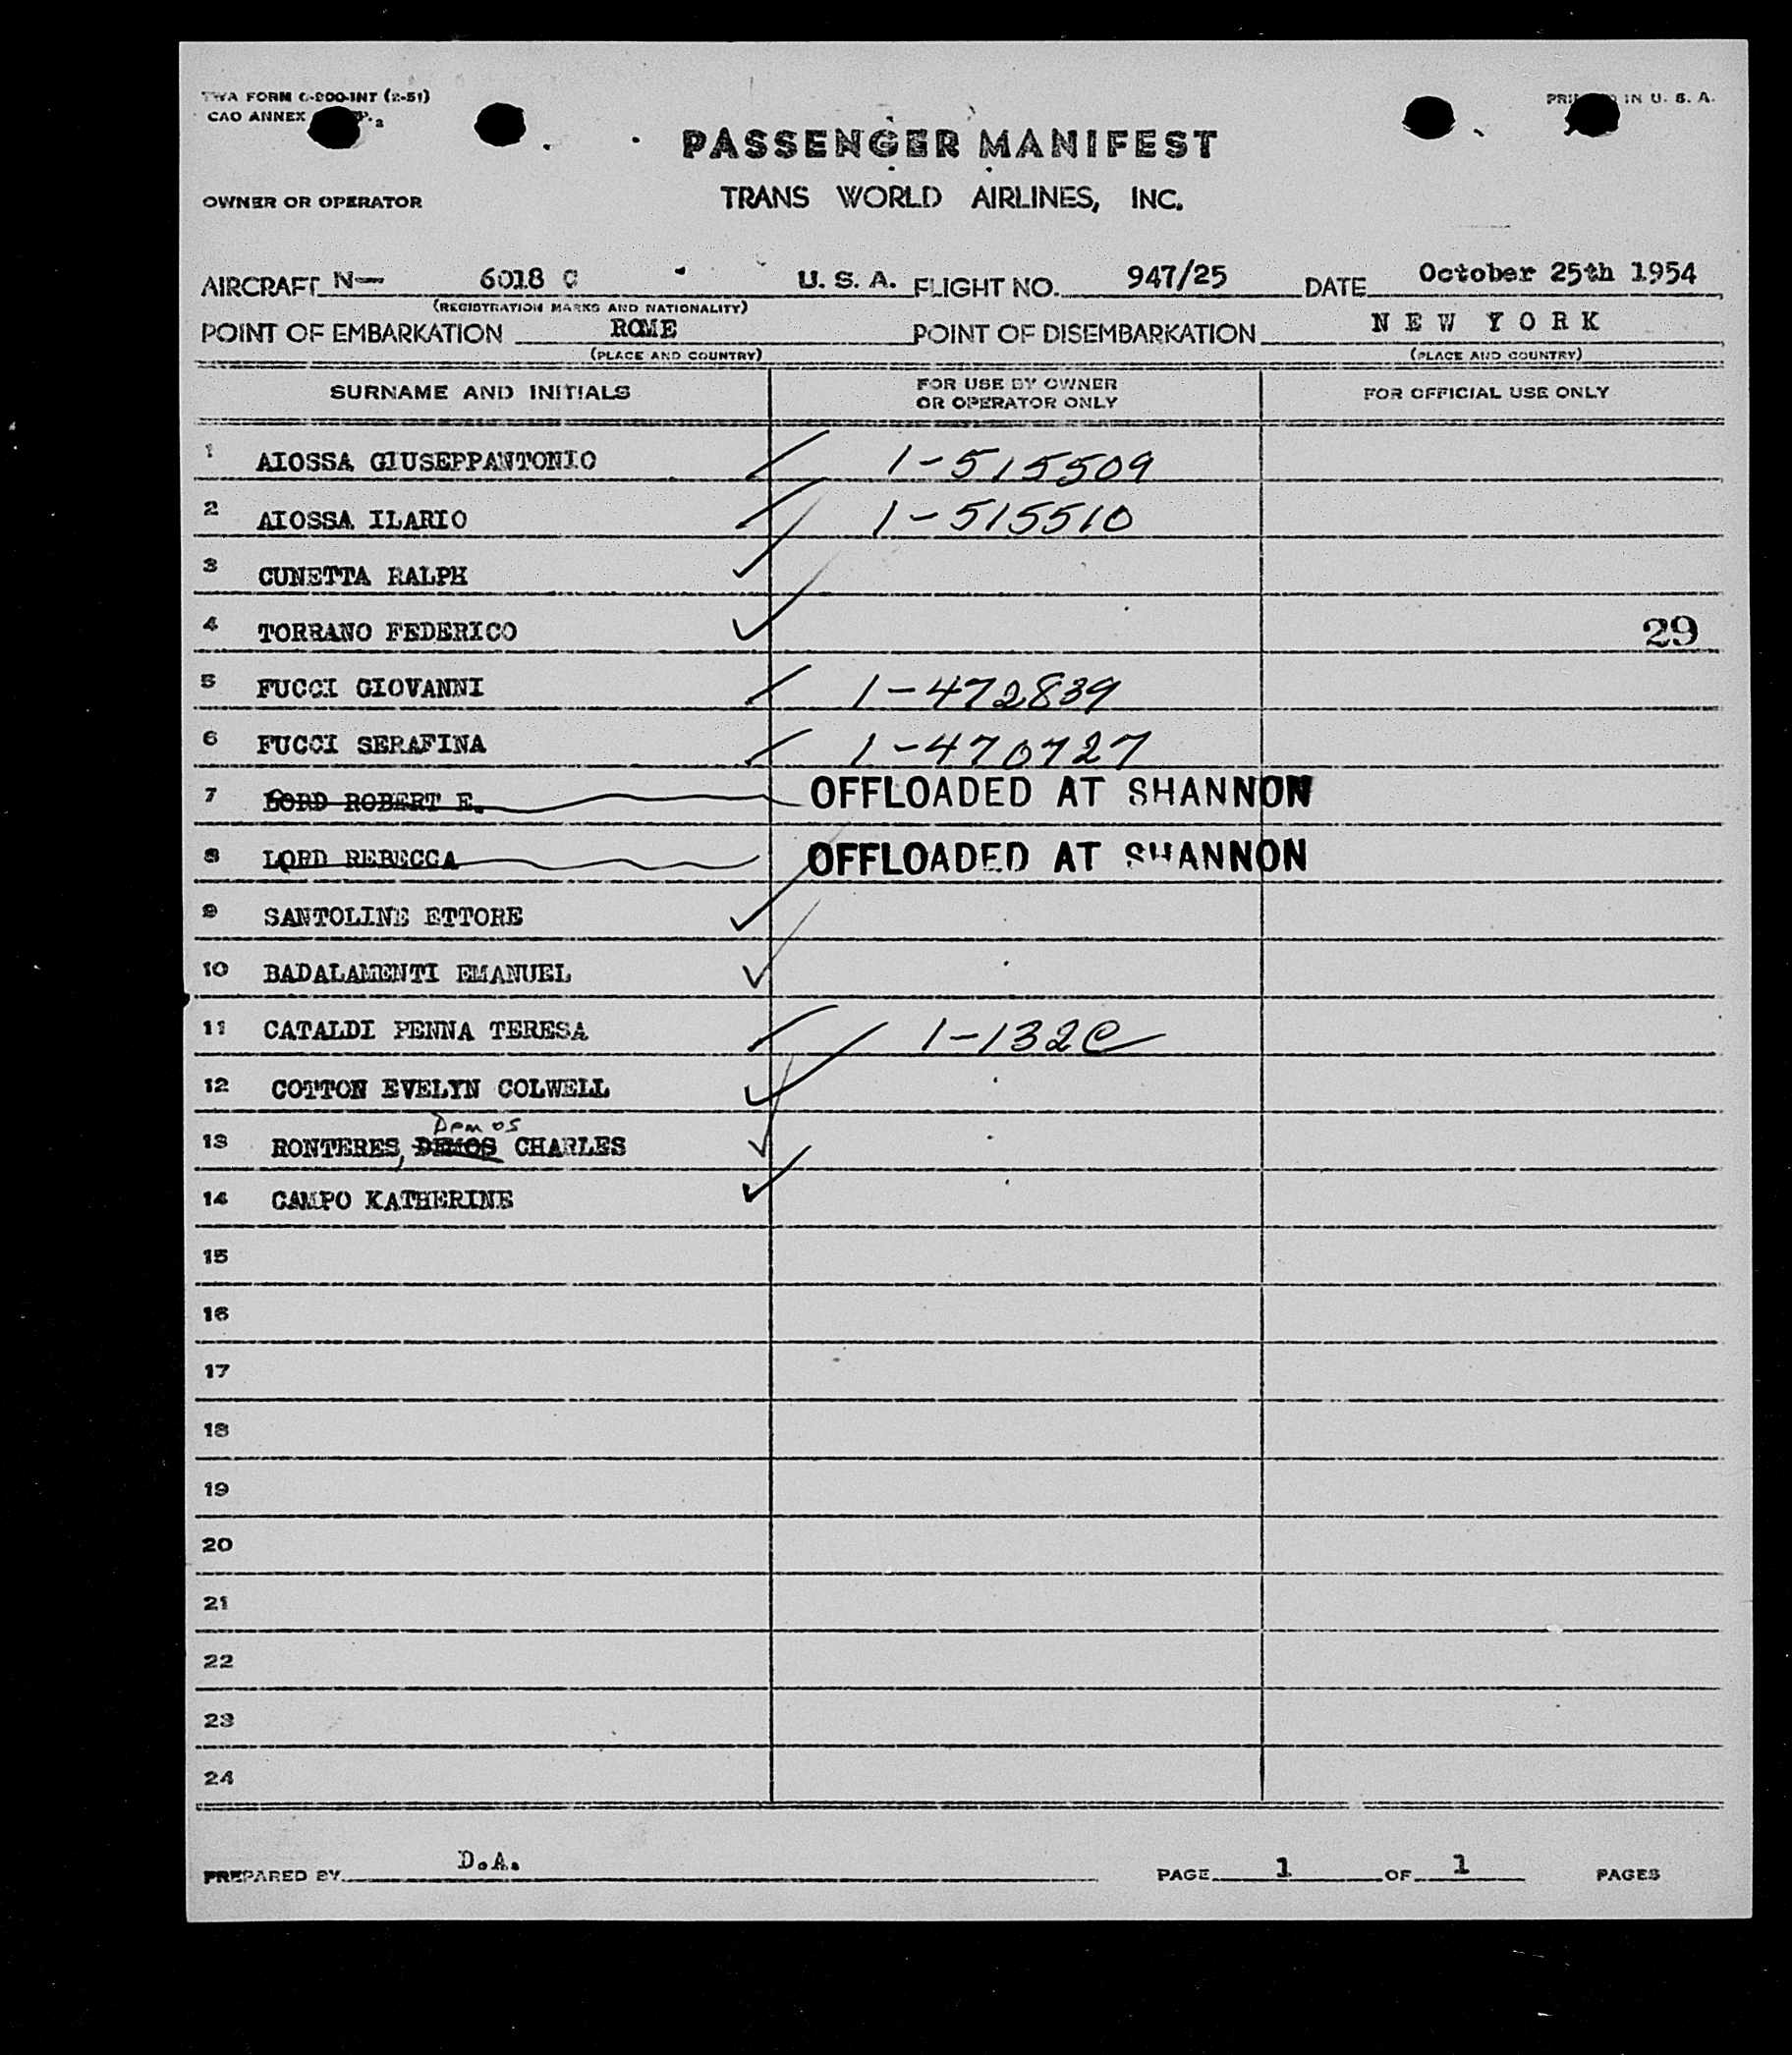 TWA FORM C-200-INT (2-51)
CAO ANNEX
PRINTED IN U. S. A.
PASSENGER MANIFEST
OWNER OR OPERATOR
TRANS WORLD AIRLINES, INC.
AIRCRAFT N— 6018 C U. S. A. FLIGHT NO. 947/25 DATE October 25th 1954
(REGISTRATION MARKS AND NATIONALITY)
POINT OF EMBARKATION ROME POINT OF DISEMBARKATION NEW YORK
(PLACE AND COUNTRY) (PLACE AND COUNTRY)
SURNAME AND INITIALS
FOR USE BY OWNER
OR OPERATOR ONLY
FOR OFFICIAL USE ONLY
1 AIOSSA GIUSEPPANTONIO 1-515509
2 AIOSSA ILARIO 1-515510
3 CUNETTA RALPH
4 TORRANO FEDERICO 29
5 FUCCI GIOVANNI 1-472839
6 FUCCI SERAFINA 1-470727
7 LORD ROBERT E. OFFLOADED AT SHANNON
8 LORD REBECCA OFFLOADED AT SHANNON
9 SANTOLINE ETTORE
10 BADALAMENTI EMANUEL
11 CATALDI PENNA TERESA 1-132C
12 COTTON EVELYN COLWELL
Demos
13 RONTERES, DEMOS CHARLES
14 CAMPO KATHERINE
15
16
17
18
19
20
21
22
23
24
PREPARED BY D.A. PAGE 1 OF 1 PAGES